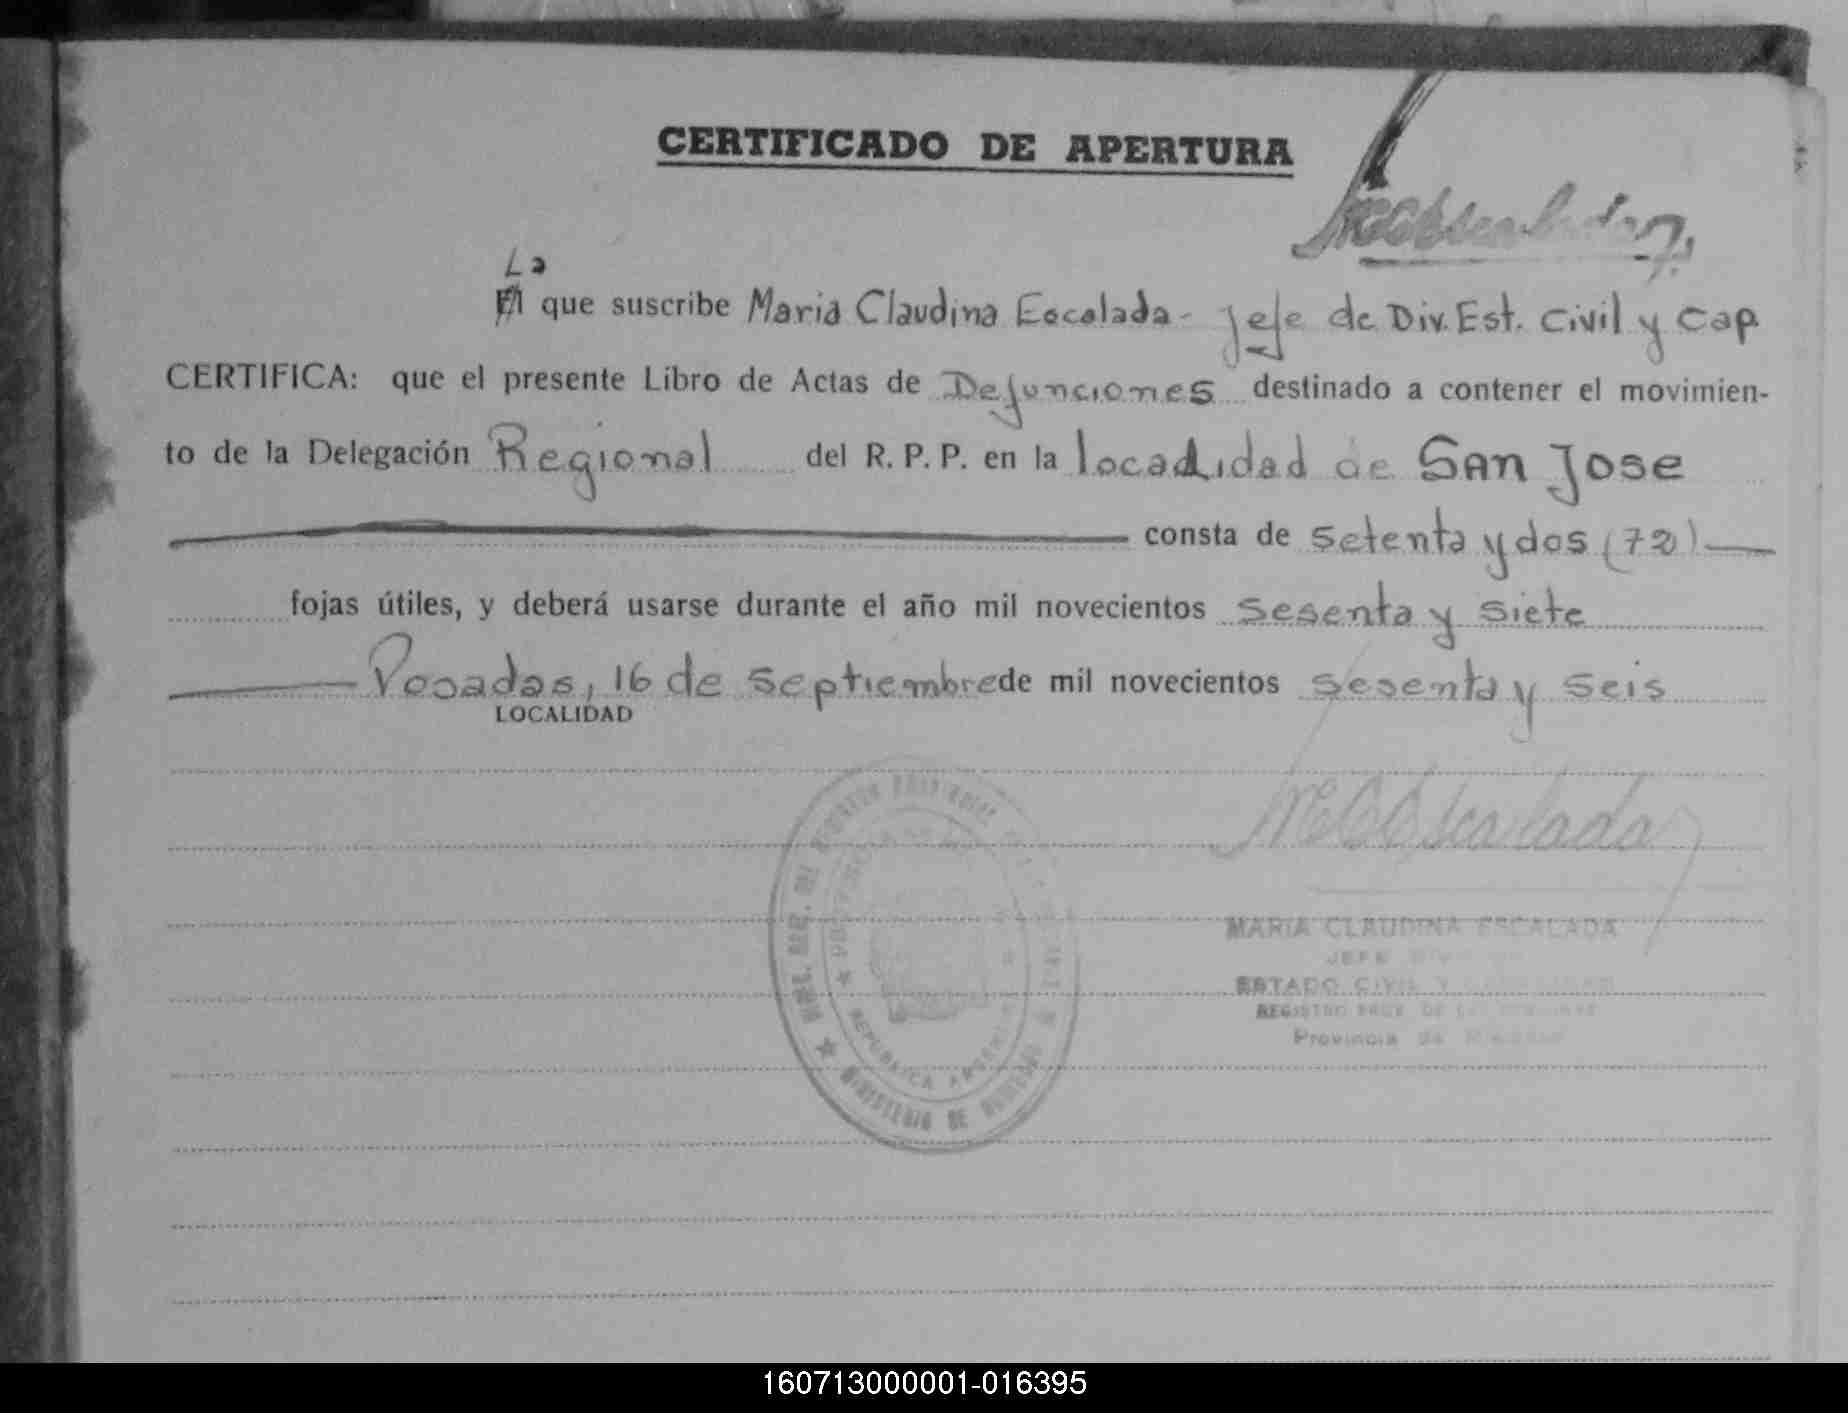 CERTIFICADO DE APERTURA
MCEscalada
La
El que suscribe Maria Claudina Escalada - Jefe de Div. Est. Civil y Cap.
CERTIFICA: que el presente Libro de Actas de Defunciones destinado a contener el movimien-
to de la Delegación Regional del R. P. P. en la localidad de San Jose
consta de setenta y dos (72)
fojas útiles, y deberá usarse durante el año mil novecientos sesenta y siete
Posadas, 16 de septiembre de mil novecientos sesenta y seis
LOCALIDAD
MCEscalada
MARIA CLAUDINA ESCALADA
JEFE
ESTADO CIVIL Y
REGISTRO PROV. DE LAS
Provincia de
MINISTERIO DE
REPUBLICA ARGENTINA
160713000001-016395